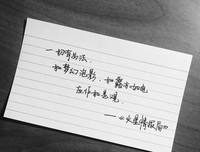 一切有为法
如梦幻泡影，如露亦如电
应作如是观。
——《火星情报局》